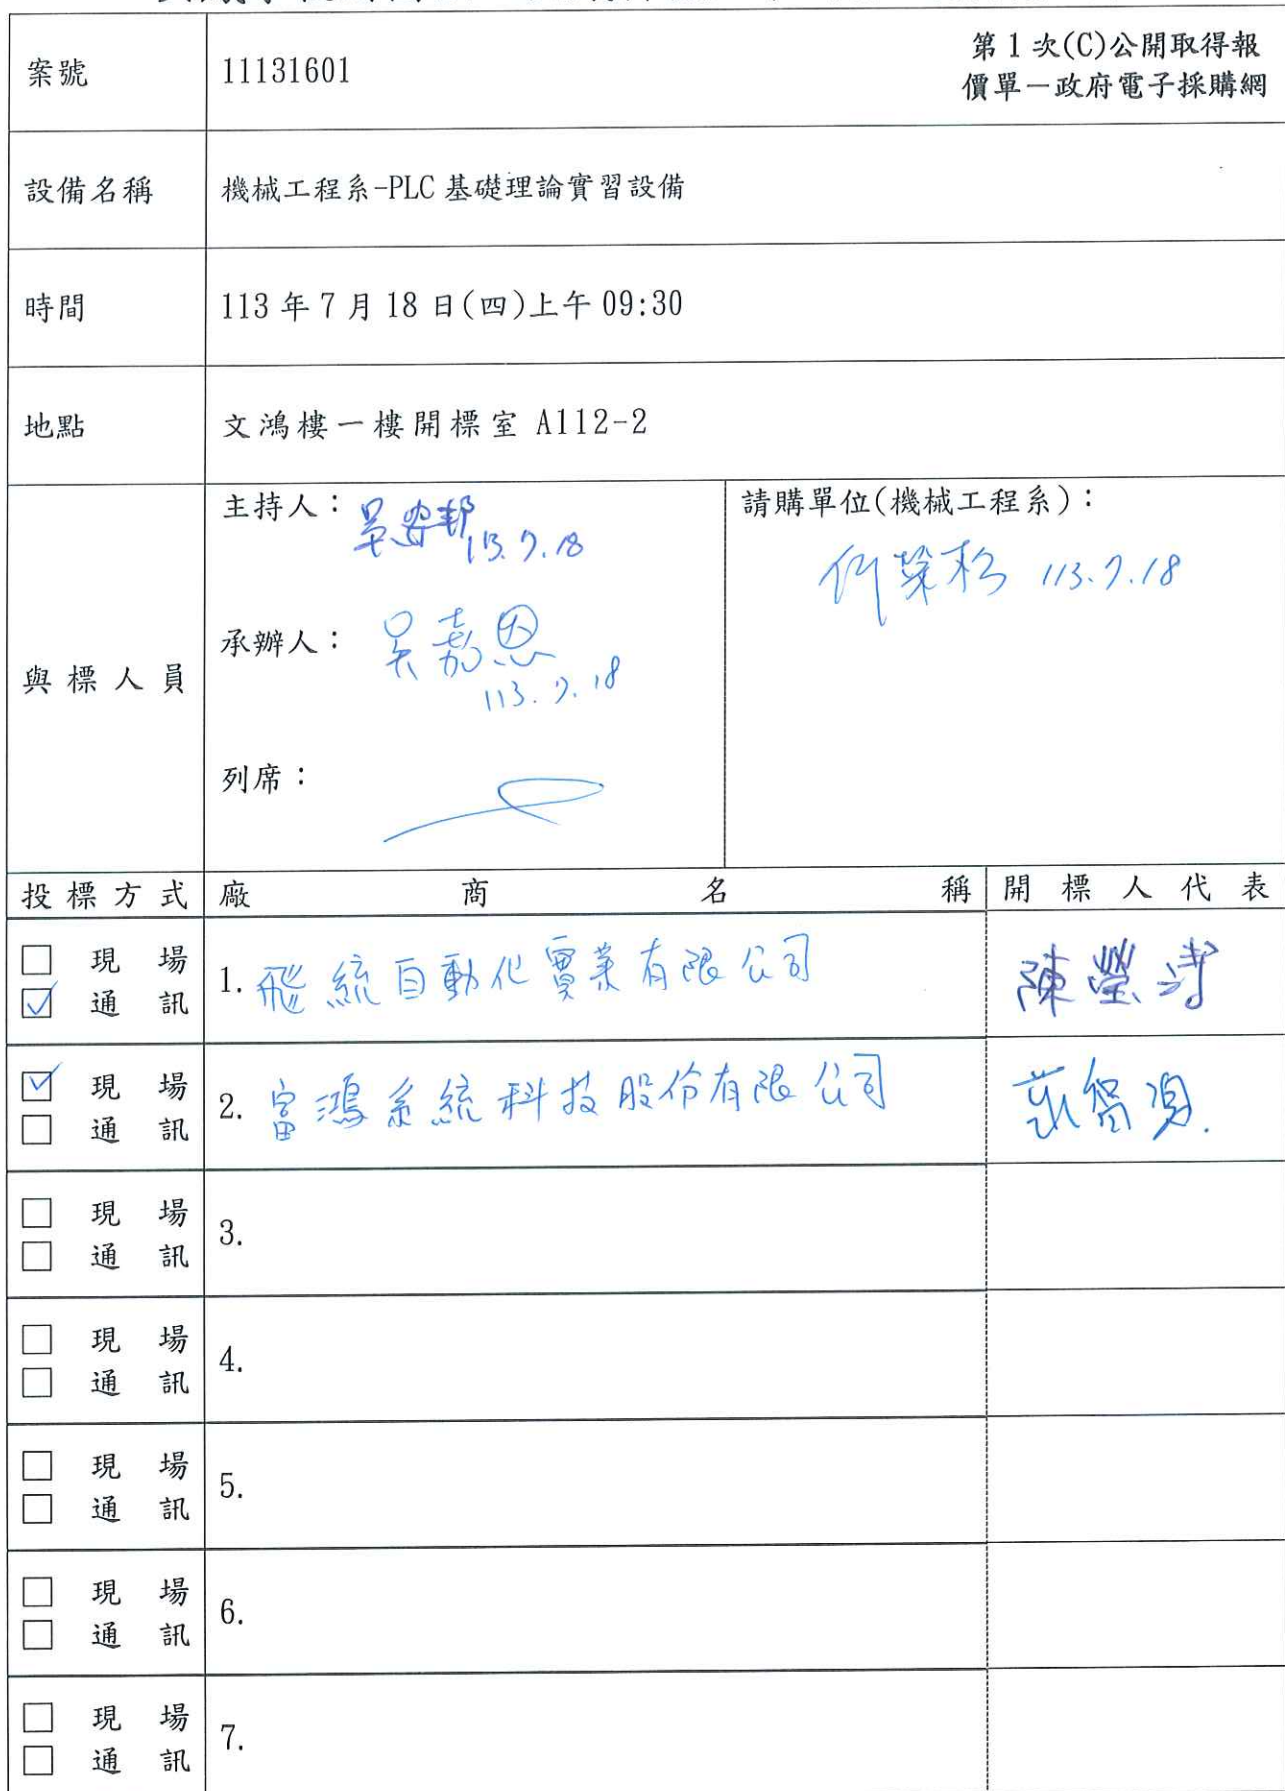 案號
11131601
第1次(C)公開取得報
價單－政府電子採購網
設備名稱
機械工程系-PLC基礎理論實習設備
時間
113年7月18日(四)上午09:30
地點
文鴻樓一樓開標室 A112-2
與標人員
主持人：
113.7.18
承辦人：吳嘉恩
113.7.18
列席：
請購單位(機械工程系)：
何榮松 113.7.18
投標方式 廠商名稱 開標人代表
□ 現場
☑ 通訊
1. 飛統自動化實業有限公司
☑ 現場
□ 通訊
2. 富鴻系統科技股份有限公司
□ 現場
□ 通訊
3.
□ 現場
□ 通訊
4.
□ 現場
□ 通訊
5.
□ 現場
□ 通訊
6.
□ 現場
□ 通訊
7.